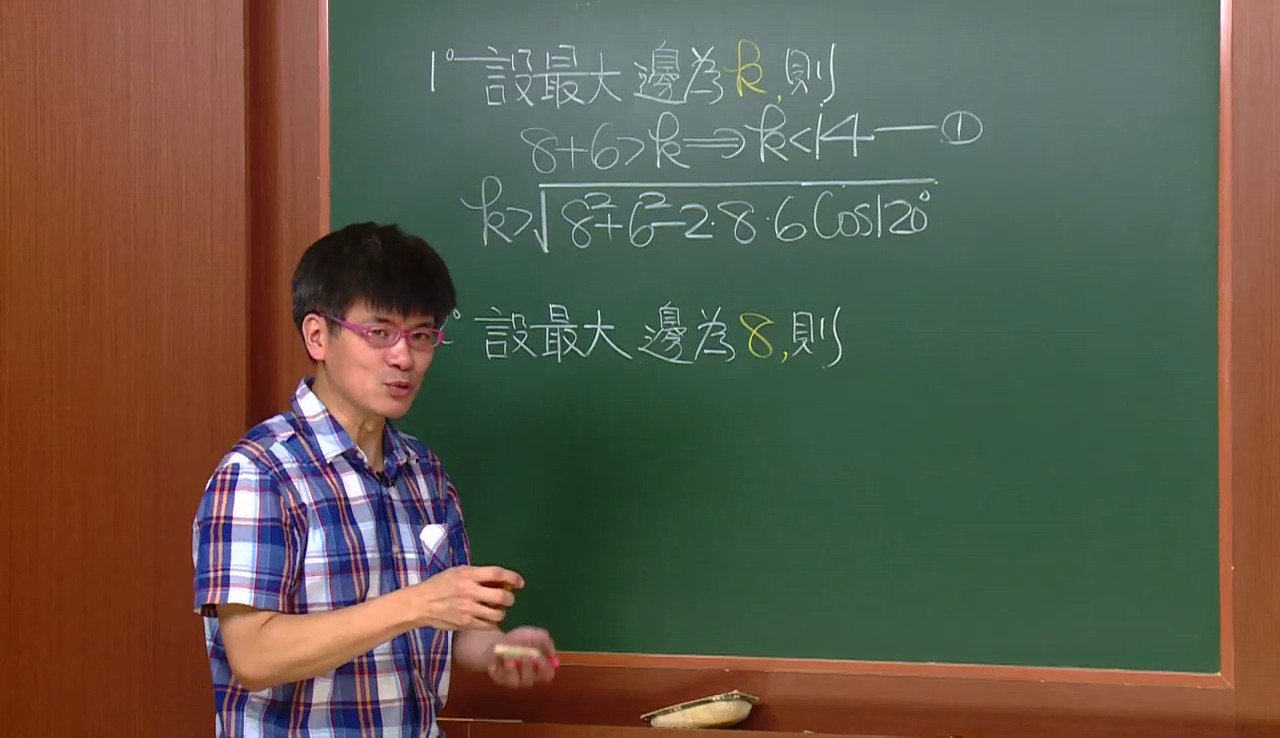 1° 設最大邊為k,則
8+6>k⇒k<14—①
k>√8²+6²-2·8·6Cos120°
° 設最大邊為8,則